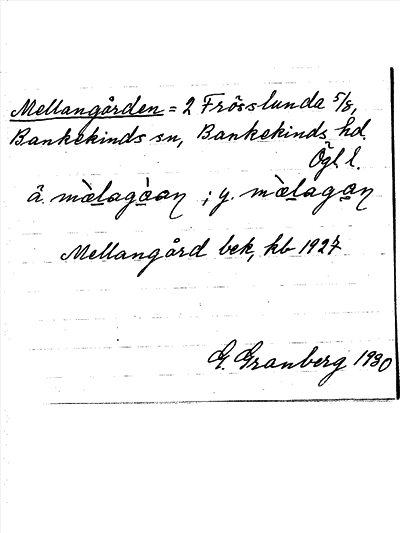 Mellangården = 2 Frösslunda 5/8,
Bankekinds sn, Bankekinds hd.
Ögl l.
ä. mæ̀lagàan ; y. mæ̀lagan
Mellangård bek, kb 1927
G. Granberg 1930